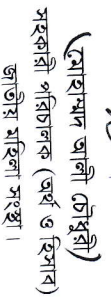 (মোহাম্মদ আলী চৌধুরী)
সহকারী পরিচালক (অর্থ ও হিসাব)
জাতীয় মহিলা সংস্থা।